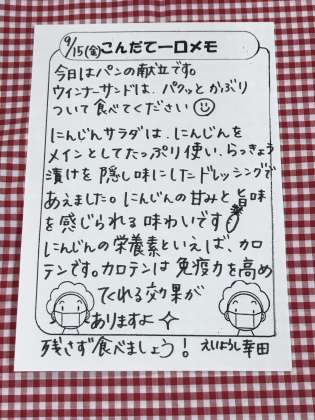 9/15(金)こんだて一口メモ
今日はパンの献立です。
ウインナーサンドは、パクッとかぶり
ついて食べてください
にんじんサラダは、にんじんを
メインとしてたっぷり使い、らっきょう
漬けを隠し味にしたドレッシングで
あえました。にんじんの甘みと旨味
を感じられる味わいです
にんじんの栄養素といえば、カロ
テンです。カロテンは免疫力を高め
てくれる効果が
ありますよ
残さず食べましょう! えいようし 幸田